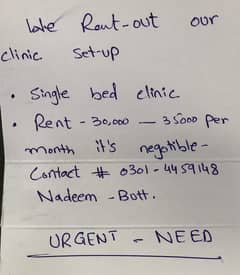 We Rent-out our
clinic Set-up
• Single bed clinic
• Rent - 30,000 — 35000 Per
month it's negotible -
Contact # 0301-4459148
Nadeem - Bott.
URGENT - NEED